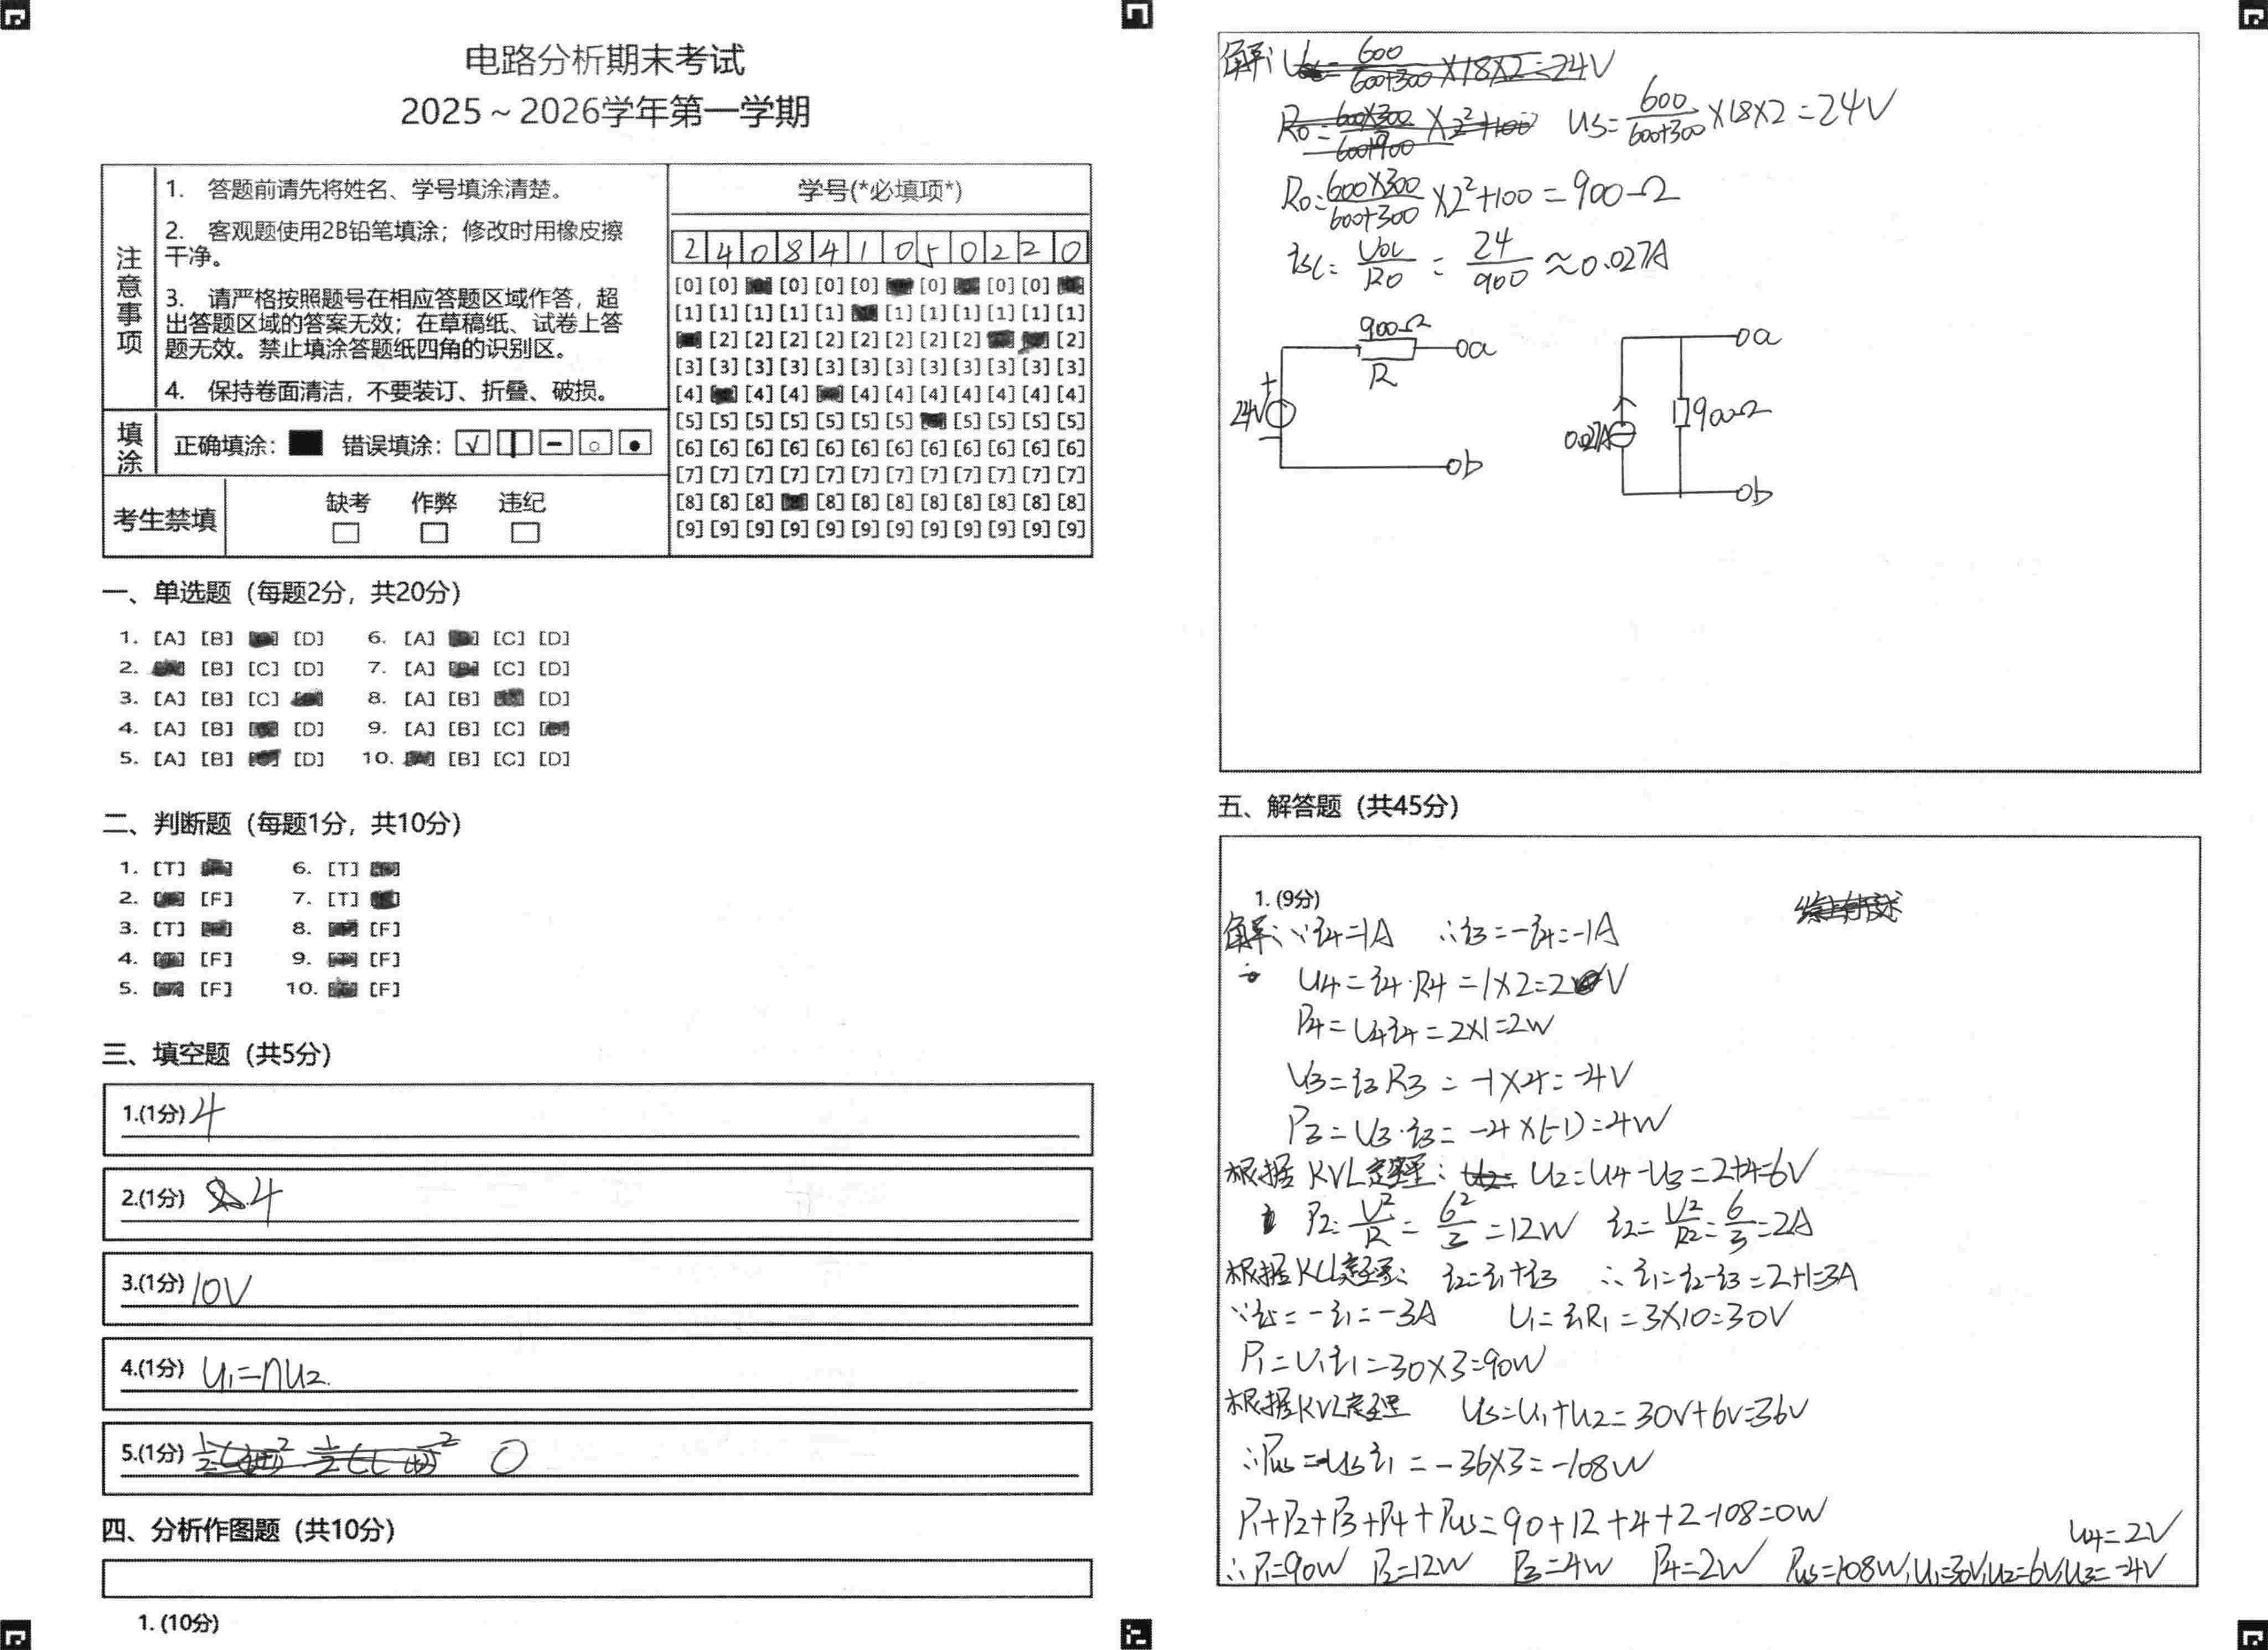 电路分析期末考试
2025～2026学年第一学期
注意事项
1. 答题前请先将姓名、学号填涂清楚。
2. 客观题使用2B铅笔填涂；修改时用橡皮擦
干净。
3. 请严格按照题号在相应答题区域作答，超
出答题区域的答案无效；在草稿纸、试卷上答
题无效。禁止填涂答题纸四角的识别区。
4. 保持卷面清洁，不要装订、折叠、破损。
填涂
正确填涂： 错误填涂：
考生禁填
缺考 作弊 违纪
学号(*必填项*)
2 4 0 8 4 1 0 5 0 2 2 0
[0] [0] [0] [0] [0] [0] [0] [0]
[1] [1] [1] [1] [1] [1] [1] [1] [1] [1] [1]
[2] [2] [2] [2] [2] [2] [2] [2] [2]
[3] [3] [3] [3] [3] [3] [3] [3] [3] [3] [3] [3]
[4] [4] [4] [4] [4] [4] [4] [4] [4] [4]
[5] [5] [5] [5] [5] [5] [5] [5] [5] [5] [5]
[6] [6] [6] [6] [6] [6] [6] [6] [6] [6] [6] [6]
[7] [7] [7] [7] [7] [7] [7] [7] [7] [7] [7] [7]
[8] [8] [8] [8] [8] [8] [8] [8] [8] [8] [8]
[9] [9] [9] [9] [9] [9] [9] [9] [9] [9] [9] [9]
一、单选题（每题2分，共20分）
1. [A] [B] [D] 6. [A] [C] [D]
2. [B] [C] [D] 7. [A] [C] [D]
3. [A] [B] [C] 8. [A] [B] [D]
4. [A] [B] [D] 9. [A] [B] [C]
5. [A] [B] [D] 10. [B] [C] [D]
二、判断题（每题1分，共10分）
1. [T] 6. [T]
2. [F] 7. [T]
3. [T] 8. [F]
4. [F] 9. [F]
5. [F] 10. [F]
三、填空题（共5分）
1.(1分) 4
2.(1分) 4
3.(1分) 10V
4.(1分) u₁=nu₂
5.(1分) 0
四、分析作图题（共10分）
1. (10分)
解: Uoc=600/(600+300)×18×2=24V
R₀=600×300/(600+900)×2²+100 us=600/(600+300)×18×2=24V
R₀=600×300/(600+300)×2²+100=900Ω
isc=Uoc/R₀=24/900≈0.027A
900Ω
R
a
24V
+
-
b
a
0.027A
900Ω
b
五、解答题（共45分）
1. (9分)
解: ∵i4=1A ∴i3=-i4=-1A
U4=i4·R4=1×2=2V
P4=U4i4=2×1=2W
U3=i3R3=-1×4=-4V
P3=U3·i3=-4×(-1)=4W
根据KVL定理: U2=U4-U3=2+4=6V
P2=U²/R=6²/3=12W i2=U2/R2=6/3=2A
根据KCL定理: i2=i1+i3 ∴i1=i2-i3=2+1=3A
∵is=-i1=-3A U1=i1R1=3×10=30V
P1=U1i1=30×3=90W
根据KVL定理 Us=U1+U2=30V+6V=36V
∴Pus=-Usi1=-36×3=-108W
P1+P2+P3+P4+Pus=90+12+4+2-108=0W
U4=2V
∴P1=90W P2=12W P3=4W P4=2W Pus=108W, U1=30V, U2=6V, U3=-4V